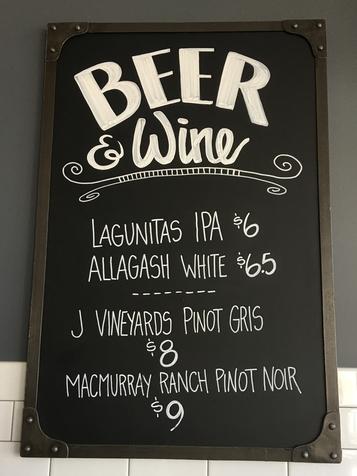 BEER
& Wine
LAGUNITAS IPA $6
ALLAGASH WHITE $6.5
J VINEYARDS PINOT GRIS
$8
MACMURRAY RANCH PINOT NOIR
$9